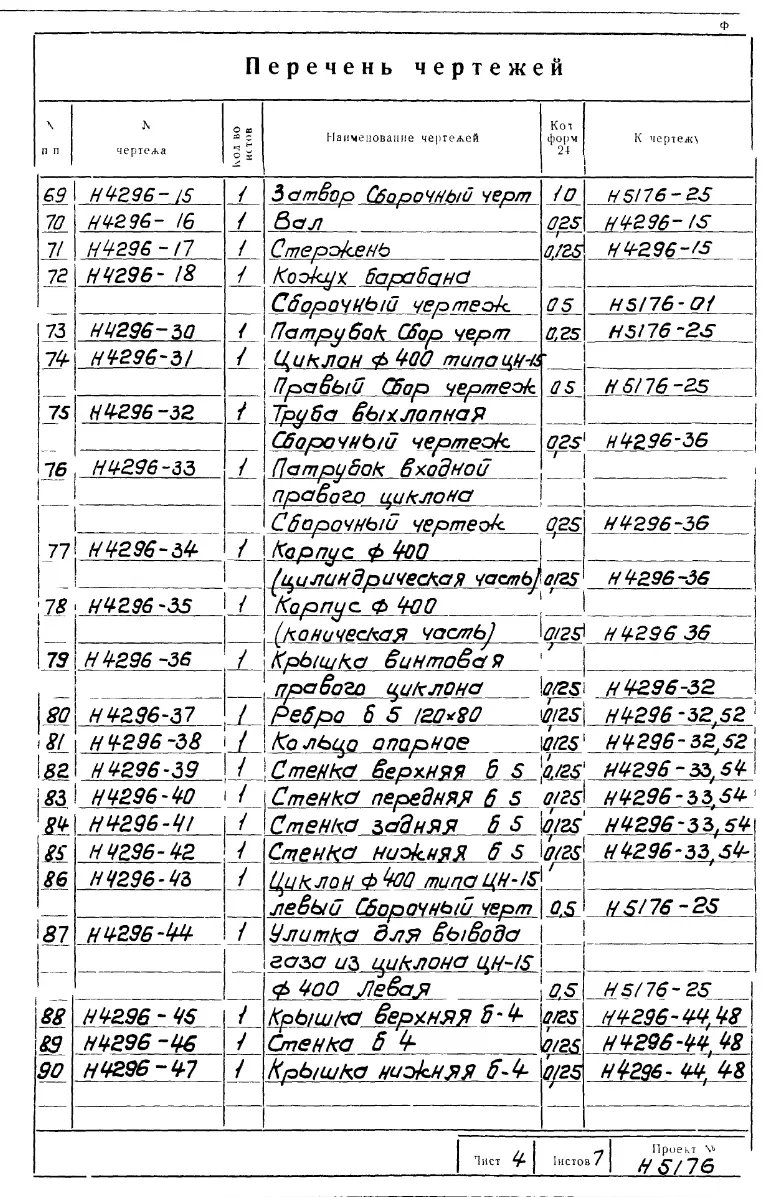 Ф
Перечень чертежей
№ пп № чертежа Кол во листов Наименование чертежей Кол форм 24 К чертежу
69 Н4296-15 1 Затвор Сборочный черт 1 0 Н5176-25
70 Н4296-16 1 Вал 0,25 Н4296-15
71 Н4296-17 1 Стержень 0,125 Н4296-15
72 Н4296-18 1 Кожух барабана
Сборочный чертеж 0 5 Н5176-01
73 Н4296-30 1 Патрубок Сбор черт 0,25 Н5176-25
74 Н4296-31 1 Циклон ф 400 типа ЦН-15
Правый Сбор чертеж 0 5 Н5176-25
75 Н4296-32 1 Труба выхлопная
Сборочный чертеж 0,25 Н4296-36
76 Н4296-33 1 Патрубок входной
правого циклона
Сборочный чертеж 0,25 Н4296-36
77 Н4296-34 1 Корпус ф 400
(цилиндрическая часть) 0,125 Н4296-36
78 Н4296-35 1 Корпус ф 400
(коническая часть) 0,125 Н4296 36
79 Н4296-36 1 Крышка винтовая
правого циклона 0,125 Н4296-32
80 Н4296-37 1 Ребро б 5 120×80 0,125 Н4296-32,52
81 Н4296-38 1 Кольцо опорное 0,125 Н4296-32,52
82 Н4296-39 1 Стенка верхняя б 5 0,125 Н4296-33,54
83 Н4296-40 1 Стенка передняя б 5 0,125 Н4296-33,54
84 Н4296-41 1 Стенка задняя б 5 0,125 Н4296-33,54
85 Н4296-42 1 Стенка нижняя б 5 0,125 Н4296-33,54
86 Н4296-43 1 Циклон ф 400 типа ЦН-15
левый Сборочный черт 0,5 Н5176-25
87 Н4296-44 1 Улитка для вывода
газа из циклона ЦН-15
ф 400 Левая 0,5 Н5176-25
88 Н4296-45 1 Крышка верхняя б-4 0,125 Н4296-44,48
89 Н4296-46 1 Стенка б 4 0,125 Н4296-44,48
90 Н4296-47 1 Крышка нижняя б-4 0,125 Н4296-44,48
Лист 4 Листов 7 Проект №
Н5176